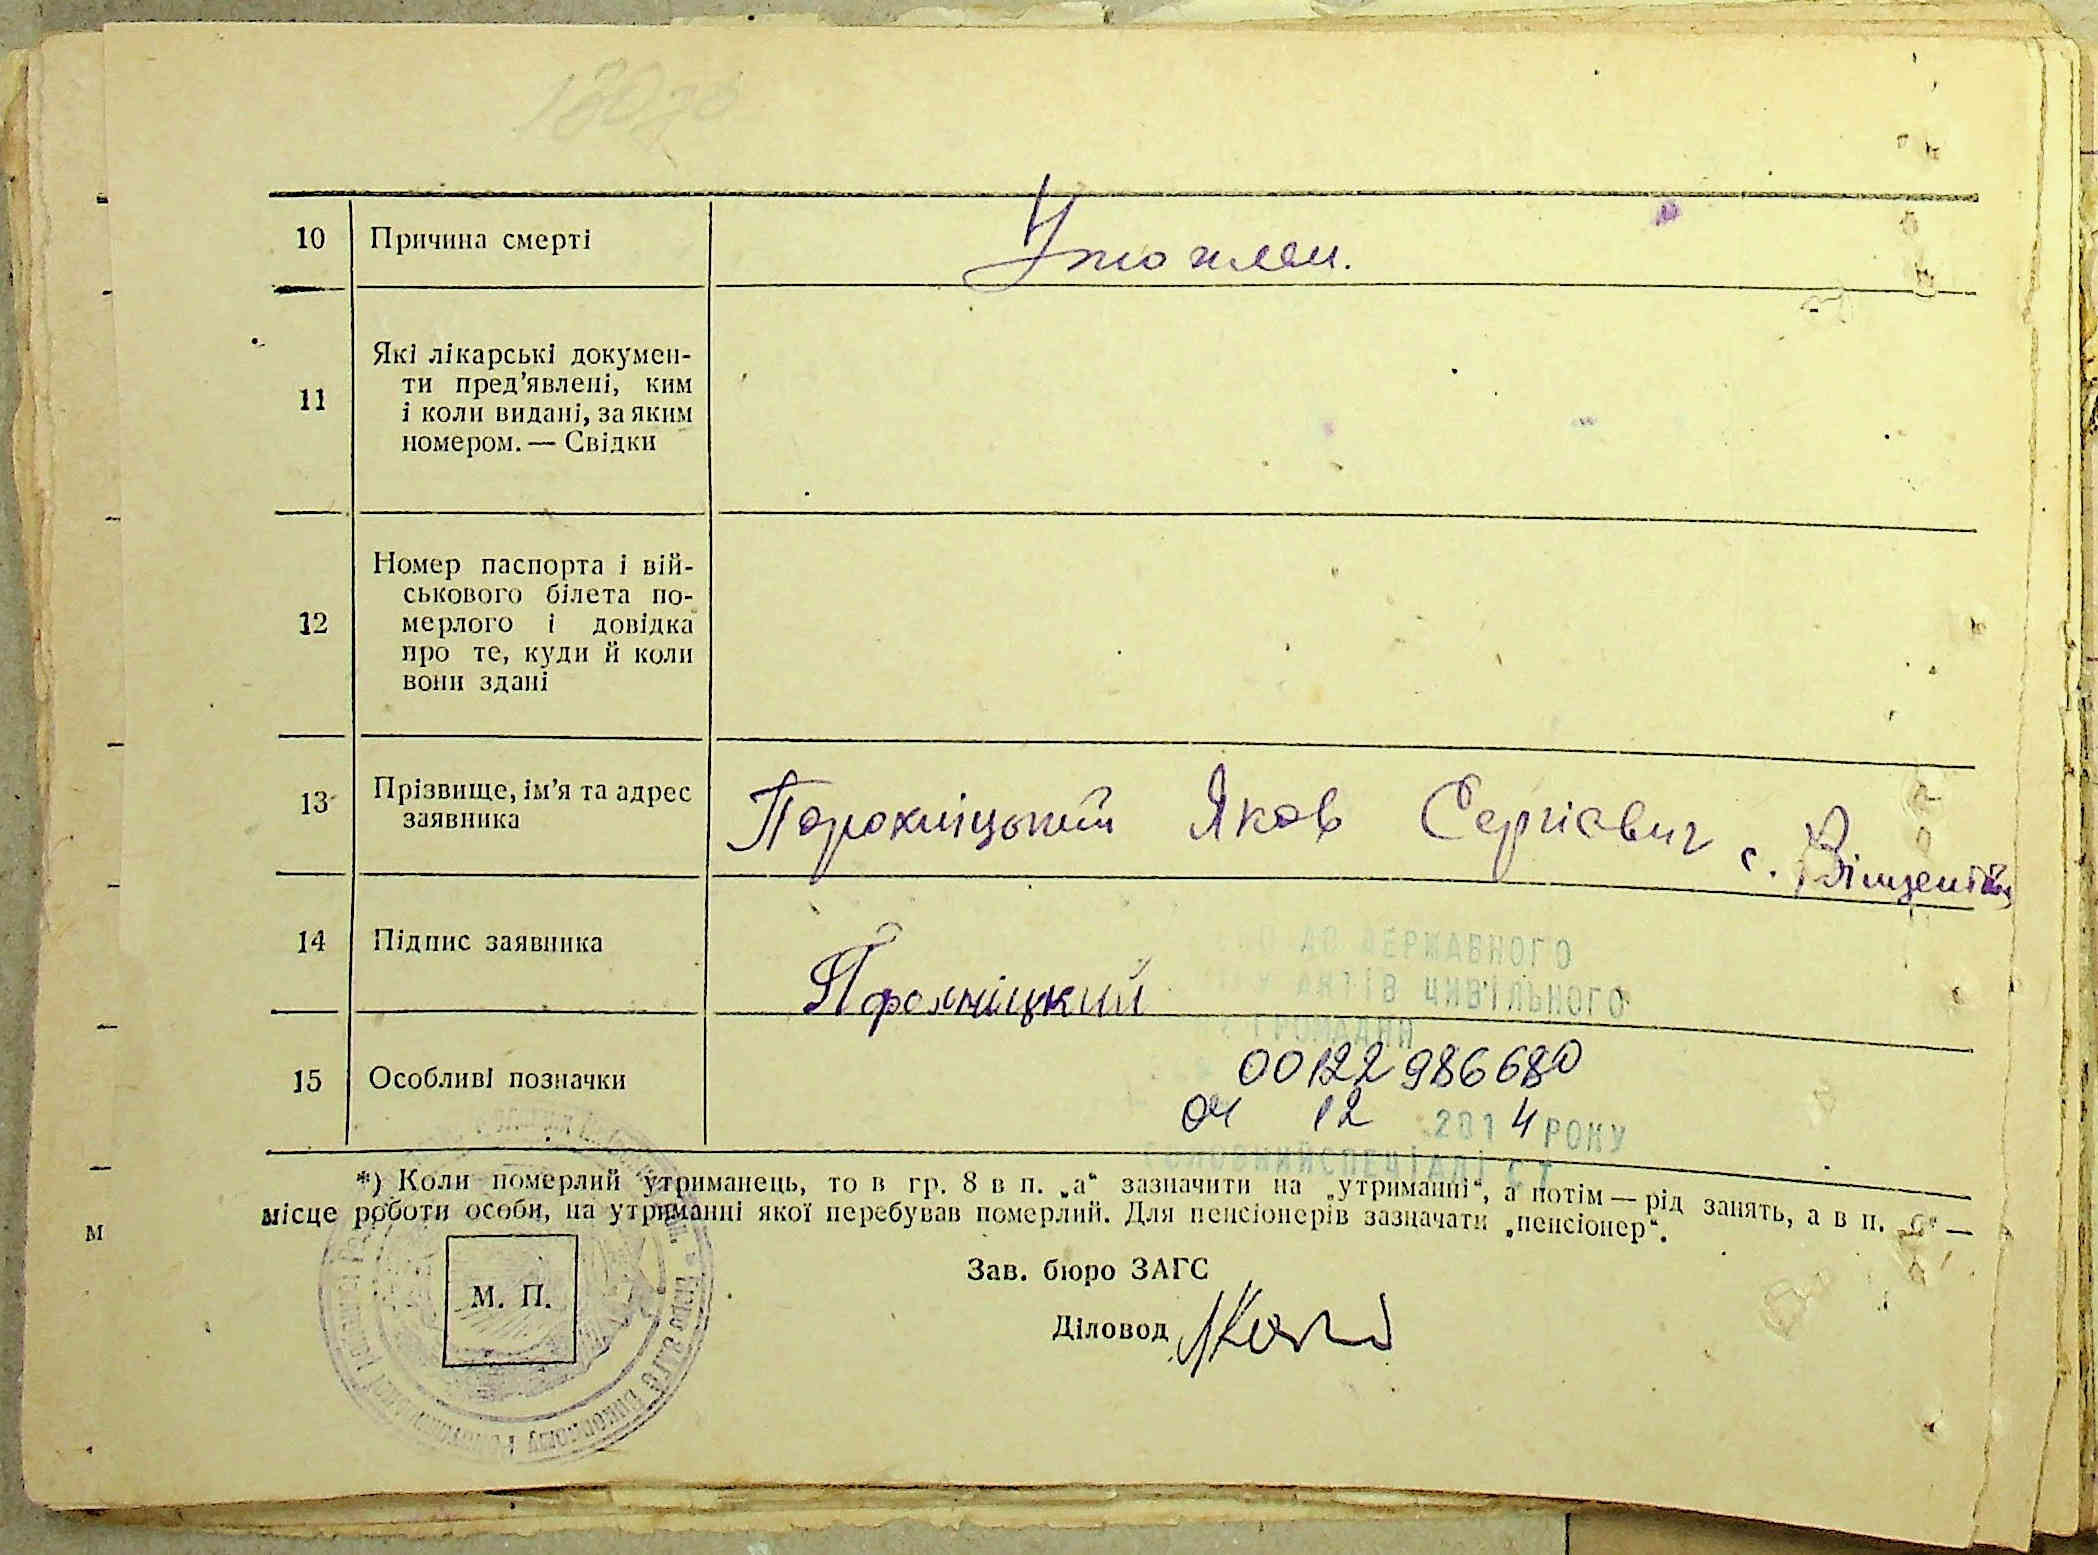 10 Причина смерті
11 Які лікарські докумен-
ти пред'явлені, ким
і коли видані, за яким
номером. — Свідки
12 Номер паспорта і вій-
ськового білета по-
мерлого і довідка
про те, куди й коли
вони здані
13 Прізвище, ім'я та адрес
заявника
Яков Сергієвич с.
14 Підпис заявника
ДО ДЕРЖАВНОГО
АКТІВ ЦИВІЛЬНОГО
ГРОМАДЯН
15 Особливі позначки
00122986680
04 12 2014 РОКУ
ГОЛОВНИЙ СПЕЦІАЛІСТ
*) Коли померлий утриманець, то в гр. 8 в п. „а“ зазначити на „утриманні“, а потім — рід занять, а в п. „б“ —
місце роботи особи, на утриманні якої перебував померлий. Для пенсіонерів зазначати „пенсіонер“.
м
М. П.
Зав. бюро ЗАГС
Діловод